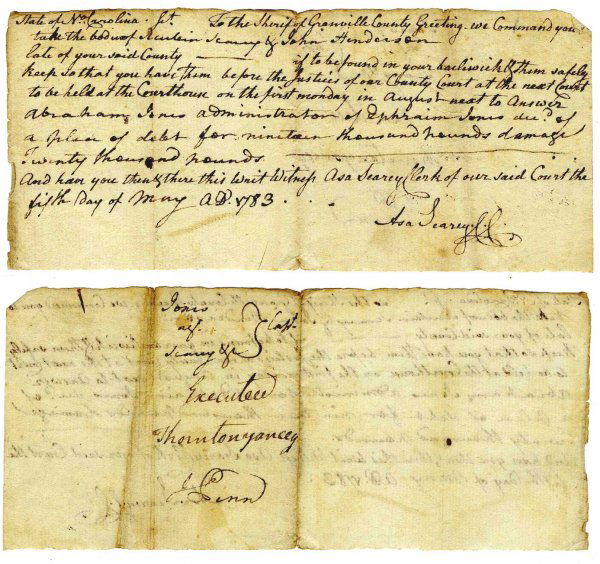 State of No Carolina. Sct. To the Sherif of Granville County Greeting. we Command you
take the body of Reubin Searcy & John Henderson
late of your said County is to be found in your bailiwick & them safely
keep so that you have them before the Justices of our County Court at the next Court
to be held at the Courthouse on the first monday in August next to Answer
Abraham Jones administrator of Ephraim Jones decd. of
a plea of debt for nineteen thousand pounds damage
Twenty thousand pounds
And have you then & there this Writ Witness Asa Searcy Clerk of our said Court the
fifth day of May AD. 1783
Asa Searcy CC.
Jones
Searcy &
Executed
Thornton Yancey
J Penn